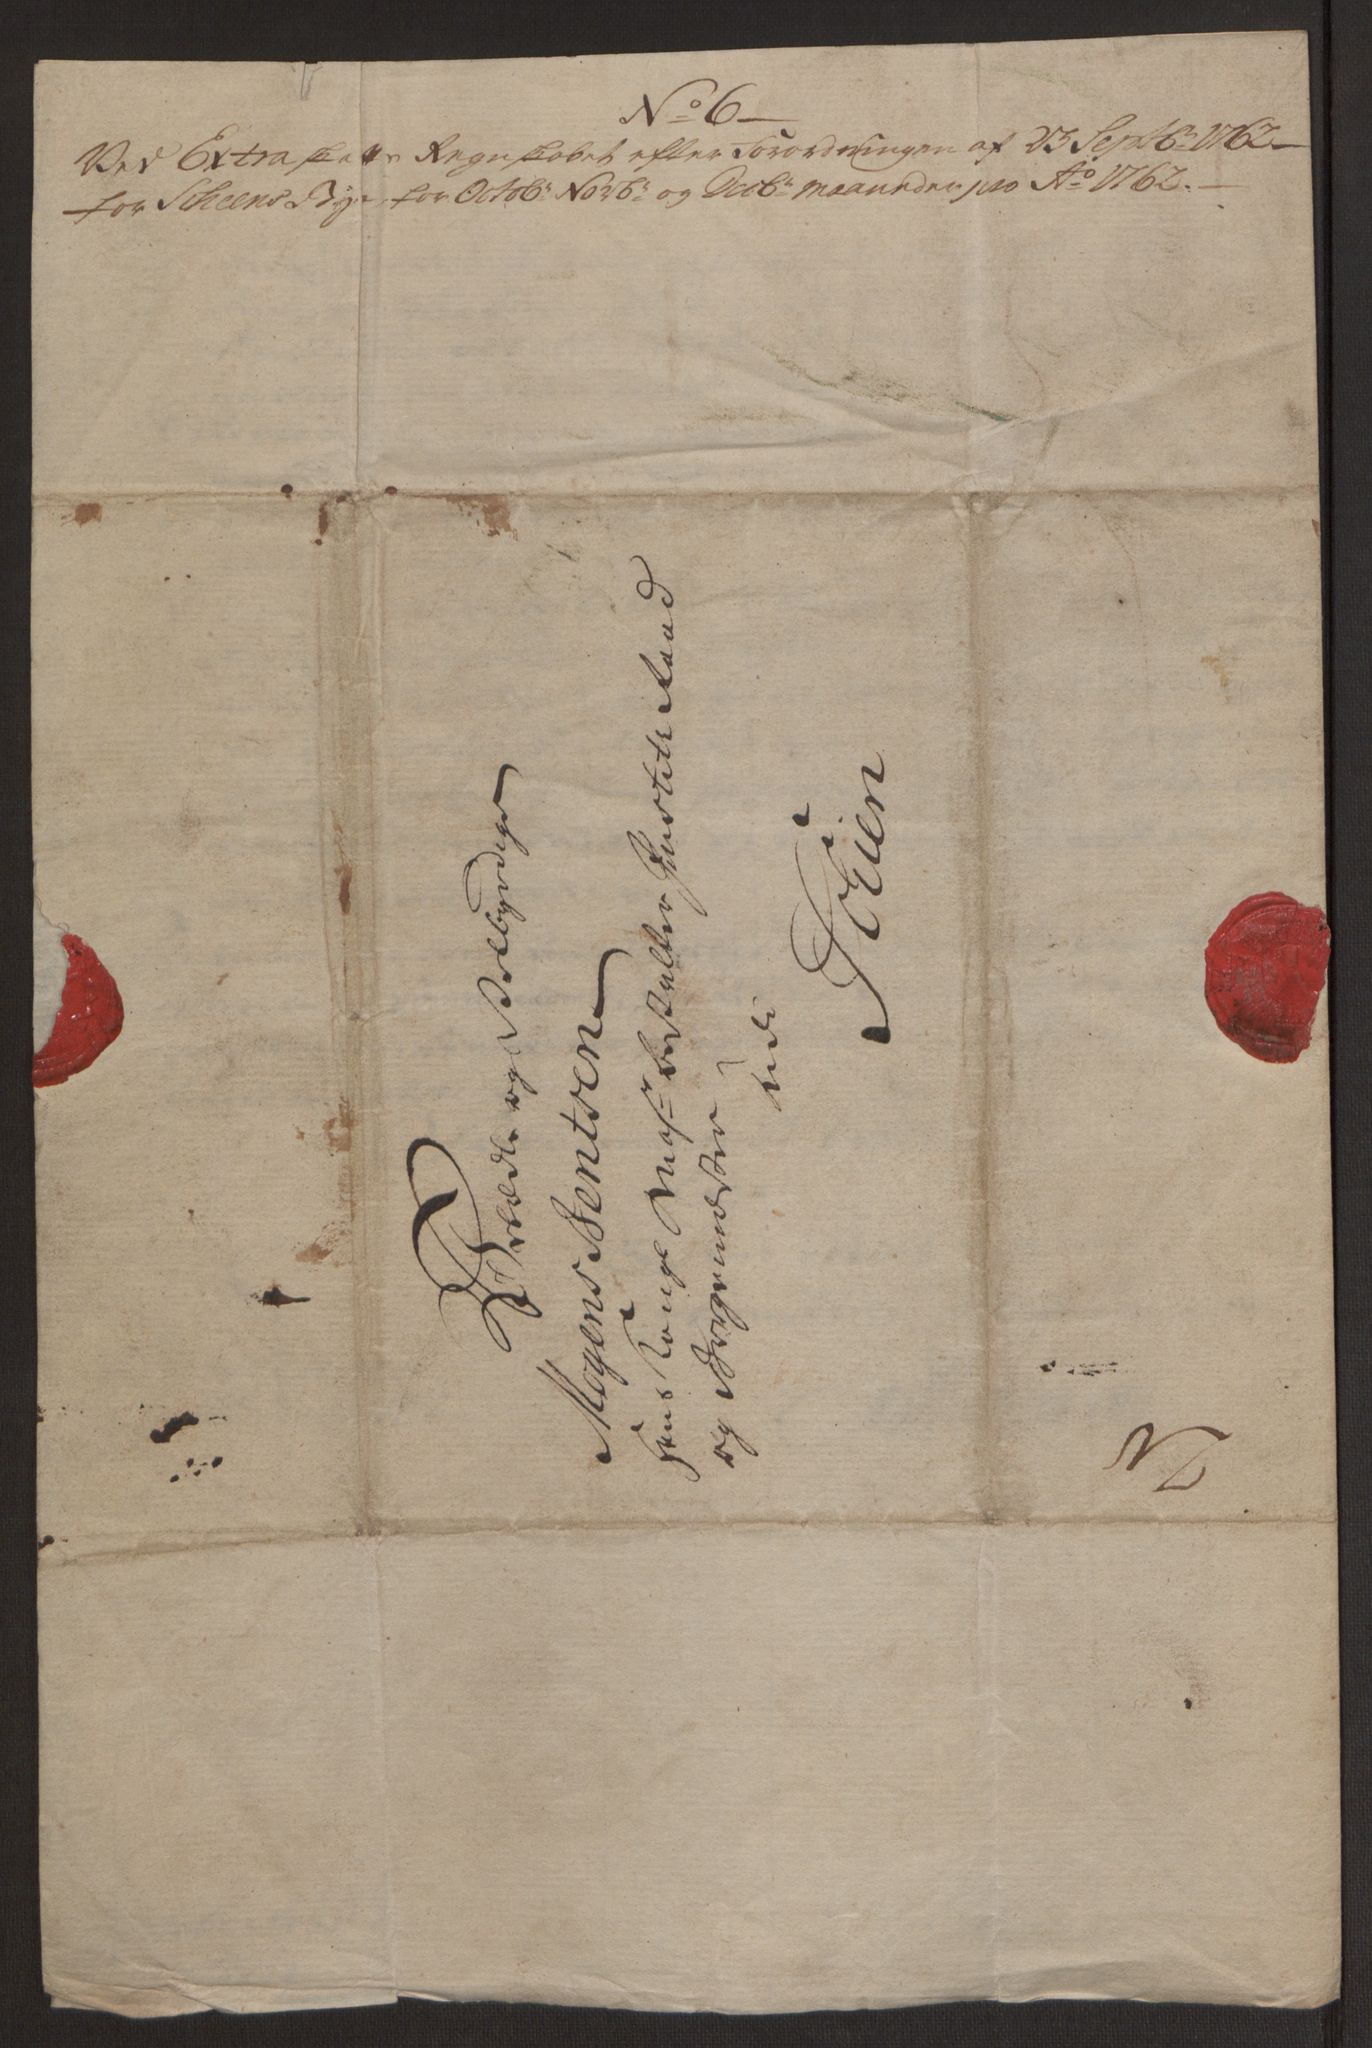 No 6
Ved Extra skatte Regnskabet efter Forordningen af 23 Septbr 1762
for Scheens Bye, for Octobr Novbr og Decbr maaneder pro Ao 1762.
Velædle og Velbyrdige
Mogens Bentsen
Hans Kongl Majts bestalter Justitz Raad
og Borgemester
udi
Schien